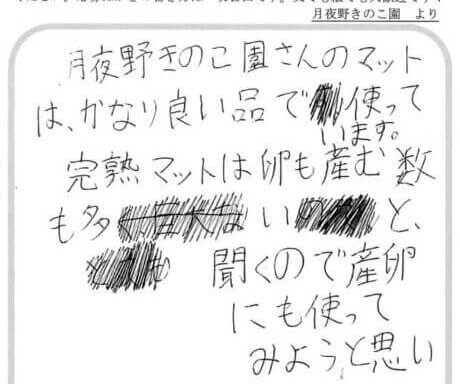 月夜野きのこ園 より
月夜野きのこ園さんのマット
は、かなり良い品で使って
います。
完熟マットは卵も産む数
も多いと、
聞くので産卵
にも使って
みようと思い